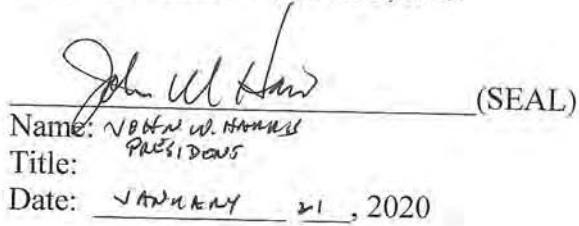 John W Harris (SEAL)
Name: JOHN W. HARRIS
PRESIDENT
Title:
Date: JANUARY 21, 2020